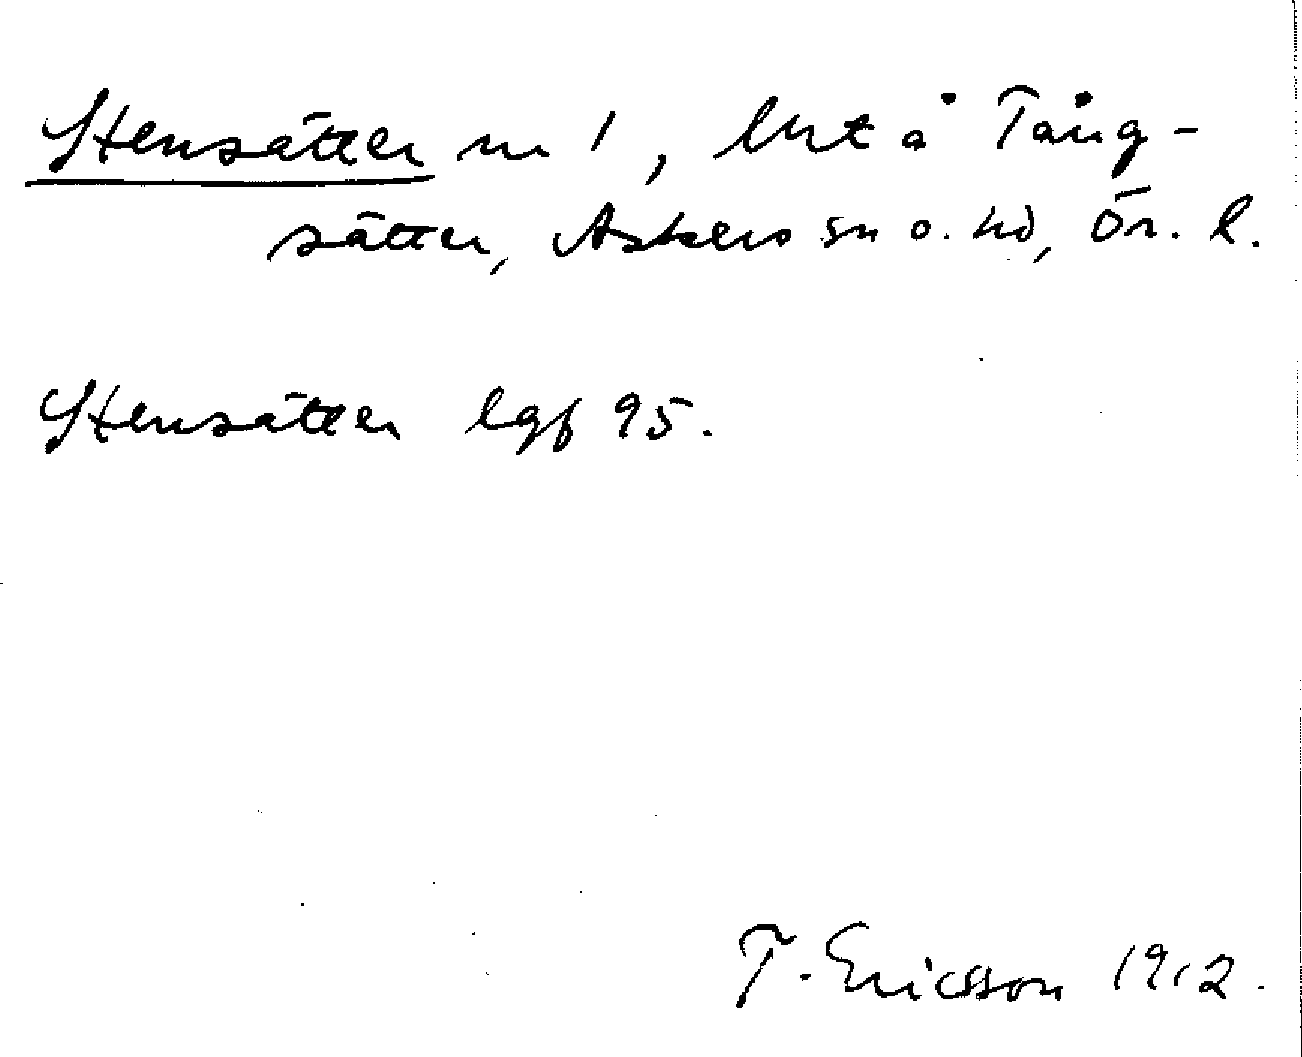 Stensätter nr 1, lht å Tång-
sätter, Askers sn o. hd, Ör. l.
Stensätter lgf 95.
T. Ericsson 1912.